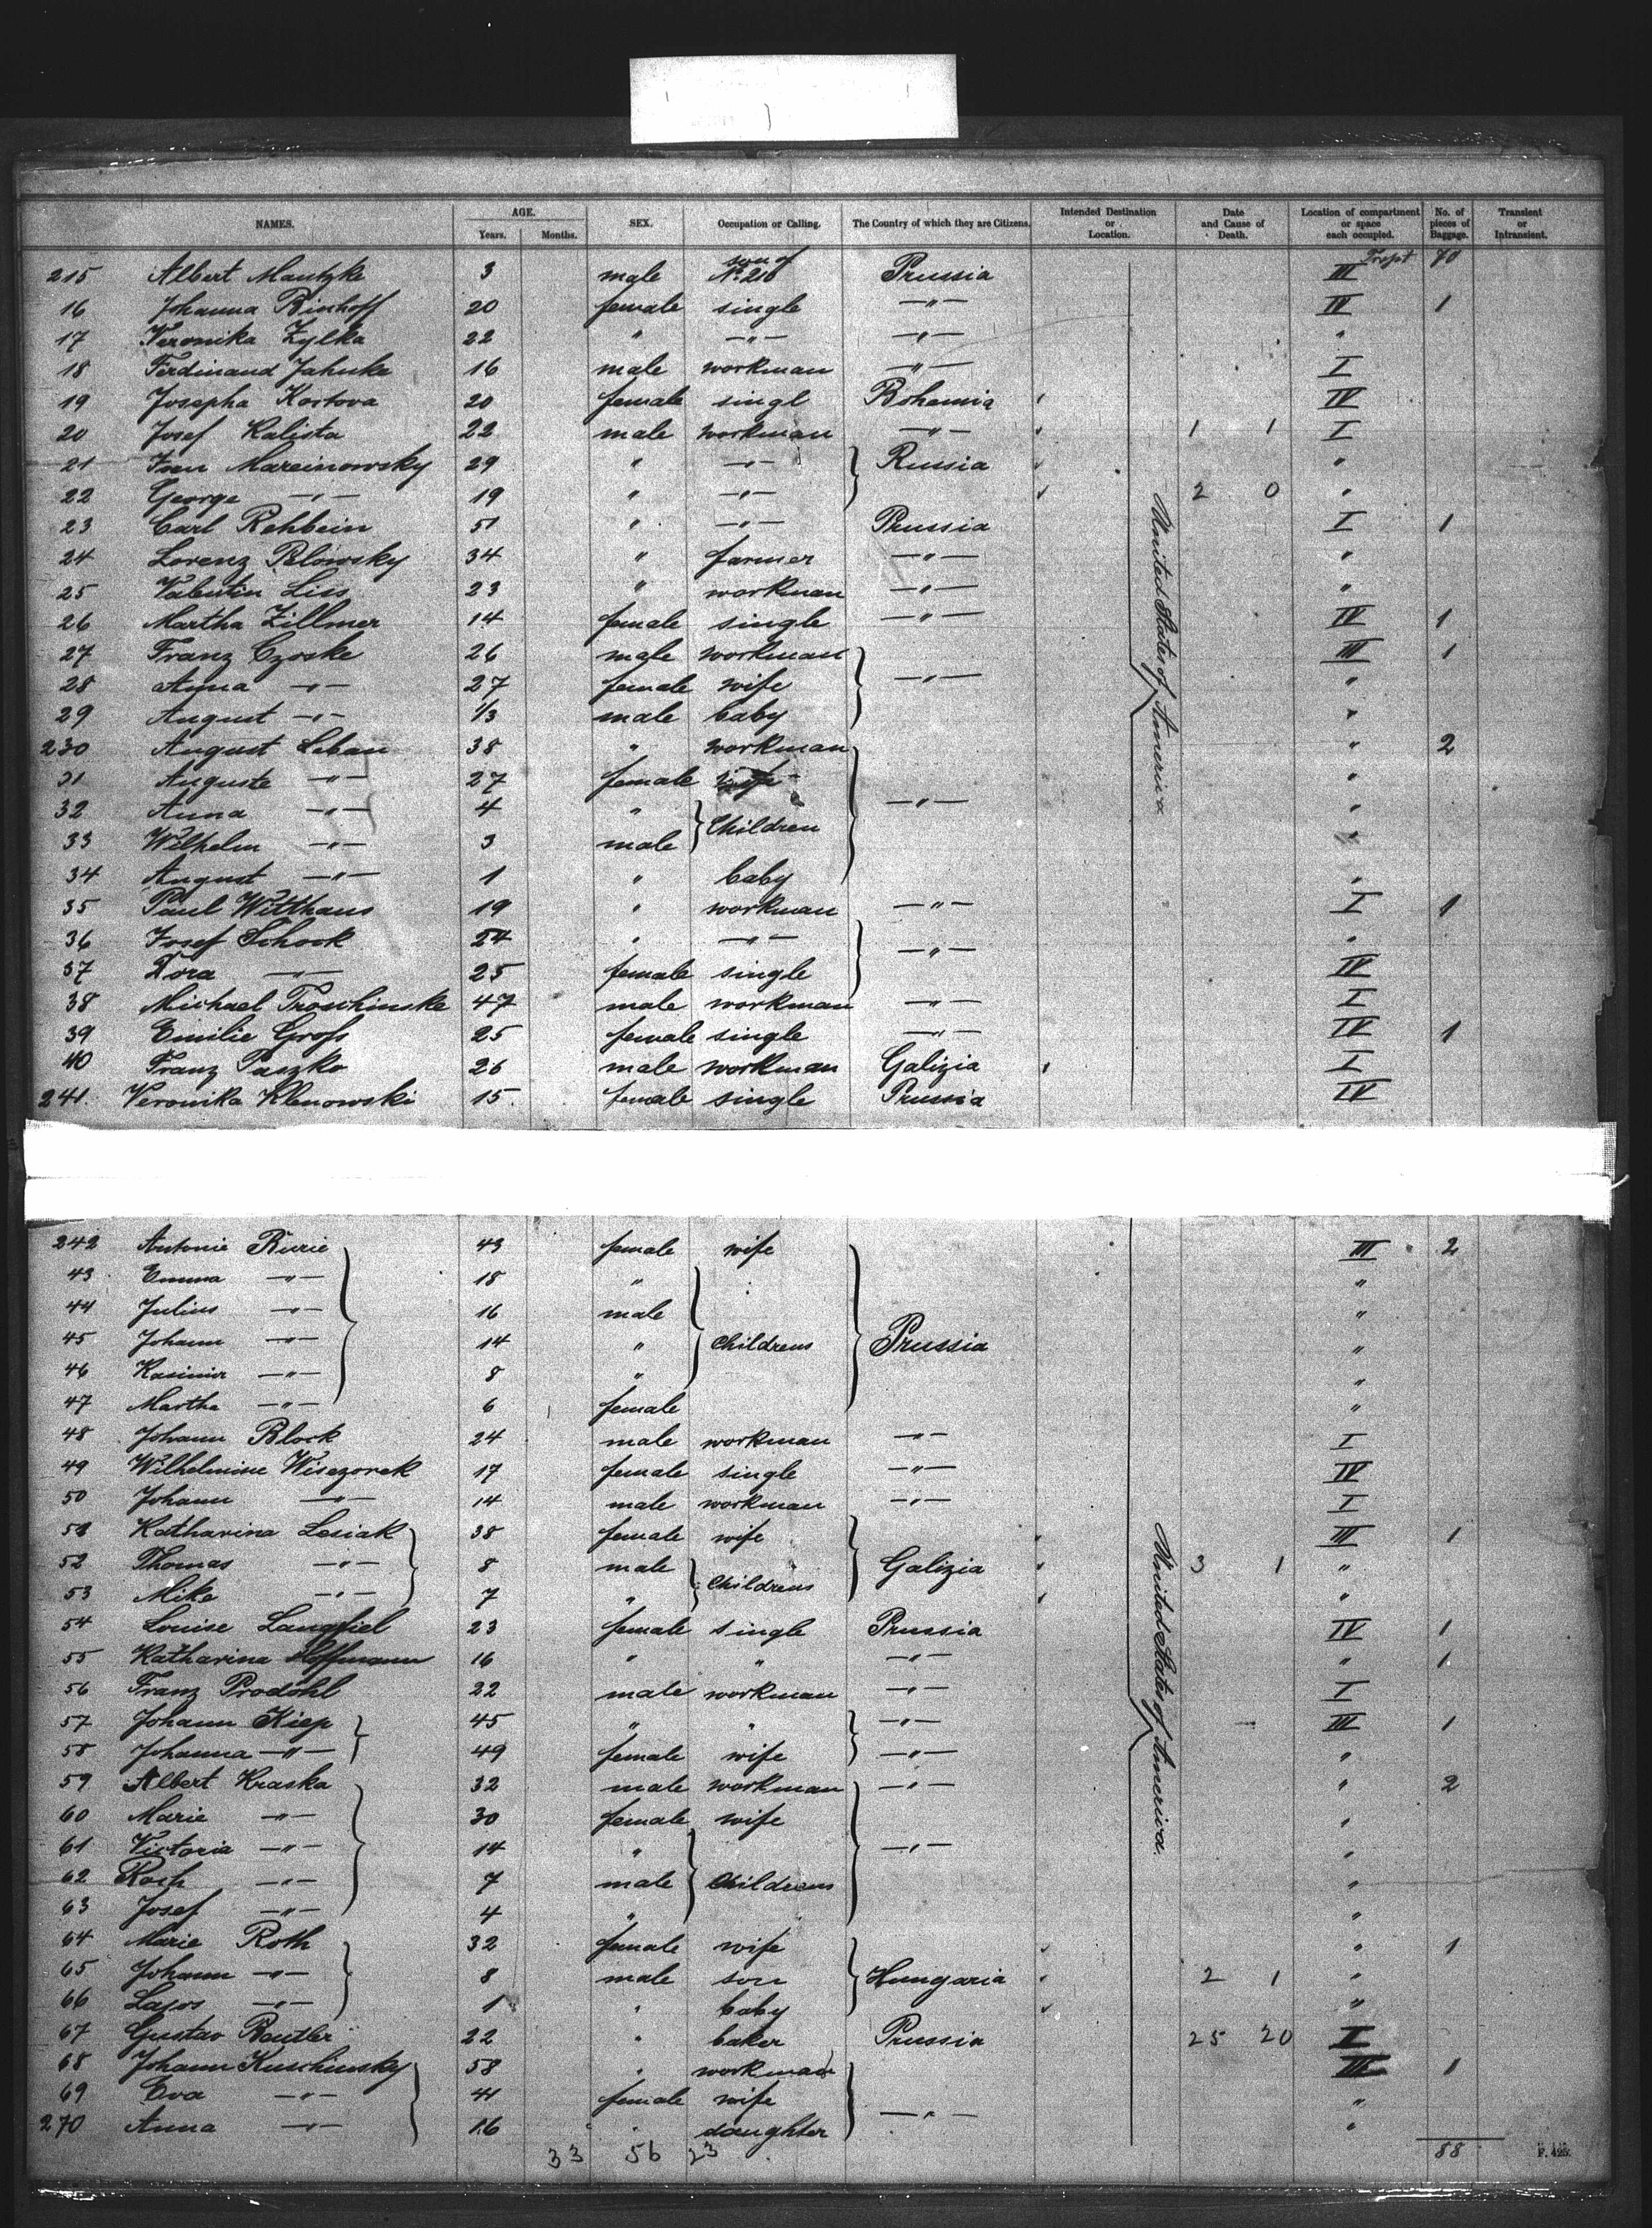 NAMES. AGE. Years. Months. SEX. Occupation or Calling. The Country of which they are Citizens. Intended Destination or Location. Date and Cause of Death. Location of compartment or space each occupied. No. of pieces of Baggage. Transient or Intransient.
215 Albert Mantzke 3 male son of No 216 Prussia III Trspt 70
16 Johanna Binhoff 20 female single —"— IV 1
17 Veronika Zylka 22 " —"— —"— "
18 Ferdinand Jahnke 16 male workman —"— I
19 Josepha Kortova 20 female singl Bohemia IV
20 Josef Kalista 22 male workman —"— 1 1 I
21 Ivan Marcinowsky 29 " —"— Russia "
22 George —"— 19 " —"— 2 0 "
23 Carl Rehbein 51 " —"— Prussia I 1
24 Lorenz Pelowsky 34 " farmer —"— "
25 Valentin Liss 23 " workman —"— "
26 Martha Zillmer 14 female single —"— IV 1
27 Franz Czoske 26 male workman III 1
28 Anna —"— 27 female wife —"— "
29 August —"— 1/3 male baby "
230 August Leban 38 " workman " 2
31 Auguste —"— 27 female wife "
32 Anna —"— 4 " Children —"— "
33 Wilhelm —"— 3 male "
34 August —"— 1 " baby "
35 Paul Witthaus 19 " workman —"— I 1
36 Josef Schock 24 " —"— —"— "
37 Dora —"— 25 female single IV
38 Michael Troschinske 47 male workman —"— I
39 Emilie Groß 25 female single —"— IV 1
40 Franz Paszko 26 male workman Galizia I
241. Veronika Klenowski 15. female single Prussia IV
United States of America
242 Antonie Burie 43 female wife III 2
43 Emma —"— 18 " "
44 Julius —"— 16 male "
45 Johann —"— 14 " Childrens Prussia "
46 Kasimir —"— 8 " "
47 Martha —"— 6 female "
48 Johann Block 24 male workman —"— I
49 Wilhelmine Wiezorek 17 female single —"— IV
50 Johann —"— 14 male workman —"— I
51 Katharina Lesiak 38 female wife III 1
52 Thomas —"— 8 male Childrens Galizia 3 1 "
53 Mike —"— 7 " "
54 Louise Langfiel 23 female single Prussia IV 1
55 Katharina Hoffmann 16 " " —"— " 1
56 Franz Prodöhl 22 male workman —"— I
57 Johann Kiep 45 " " —"— III 1
58 Johanna —"— 49 female wife —"— "
59 Albert Kraska 32 male workman —"— " 2
60 Marie —"— 30 female wife "
61 Victoria —"— 14 " —"— "
62 Roch —"— 7 male Childrens "
63 Josef —"— 4 " "
64 Marie Roth 32 female wife " 1
65 Johann —"— 8 male son Hungaria 2 1 "
66 Lajos —"— 1 " baby "
67 Gustav Beutler 22 " baker Prussia 25 20 I
68 Johann Kuschinsky 58 " workman III 1
69 Eva —"— 41 female wife "
270 Anna —"— 16 " daughter —"— "
United States of America.
33 56 23 88 F. 425.